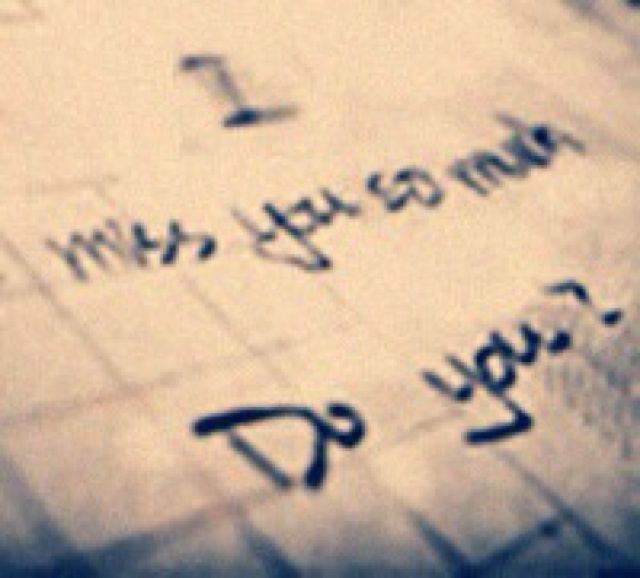 I
miss you so much
Do you?